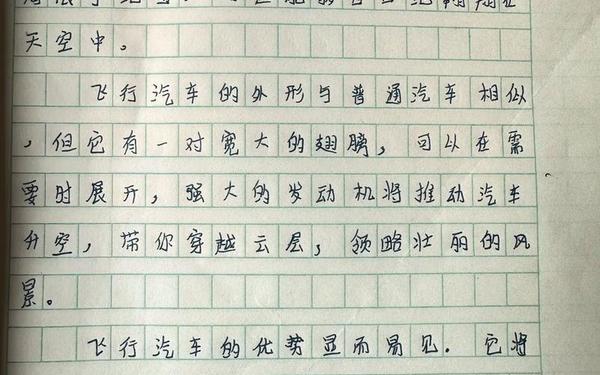 天空中。
飞行汽车的外形与普通汽车相似
,但它有一对宽大的翅膀,可以在需
要时展开,强大的发动机将推动汽车
升空,带你穿越云层,领略壮丽的风
景。
飞行汽车的优势显而易见.它将